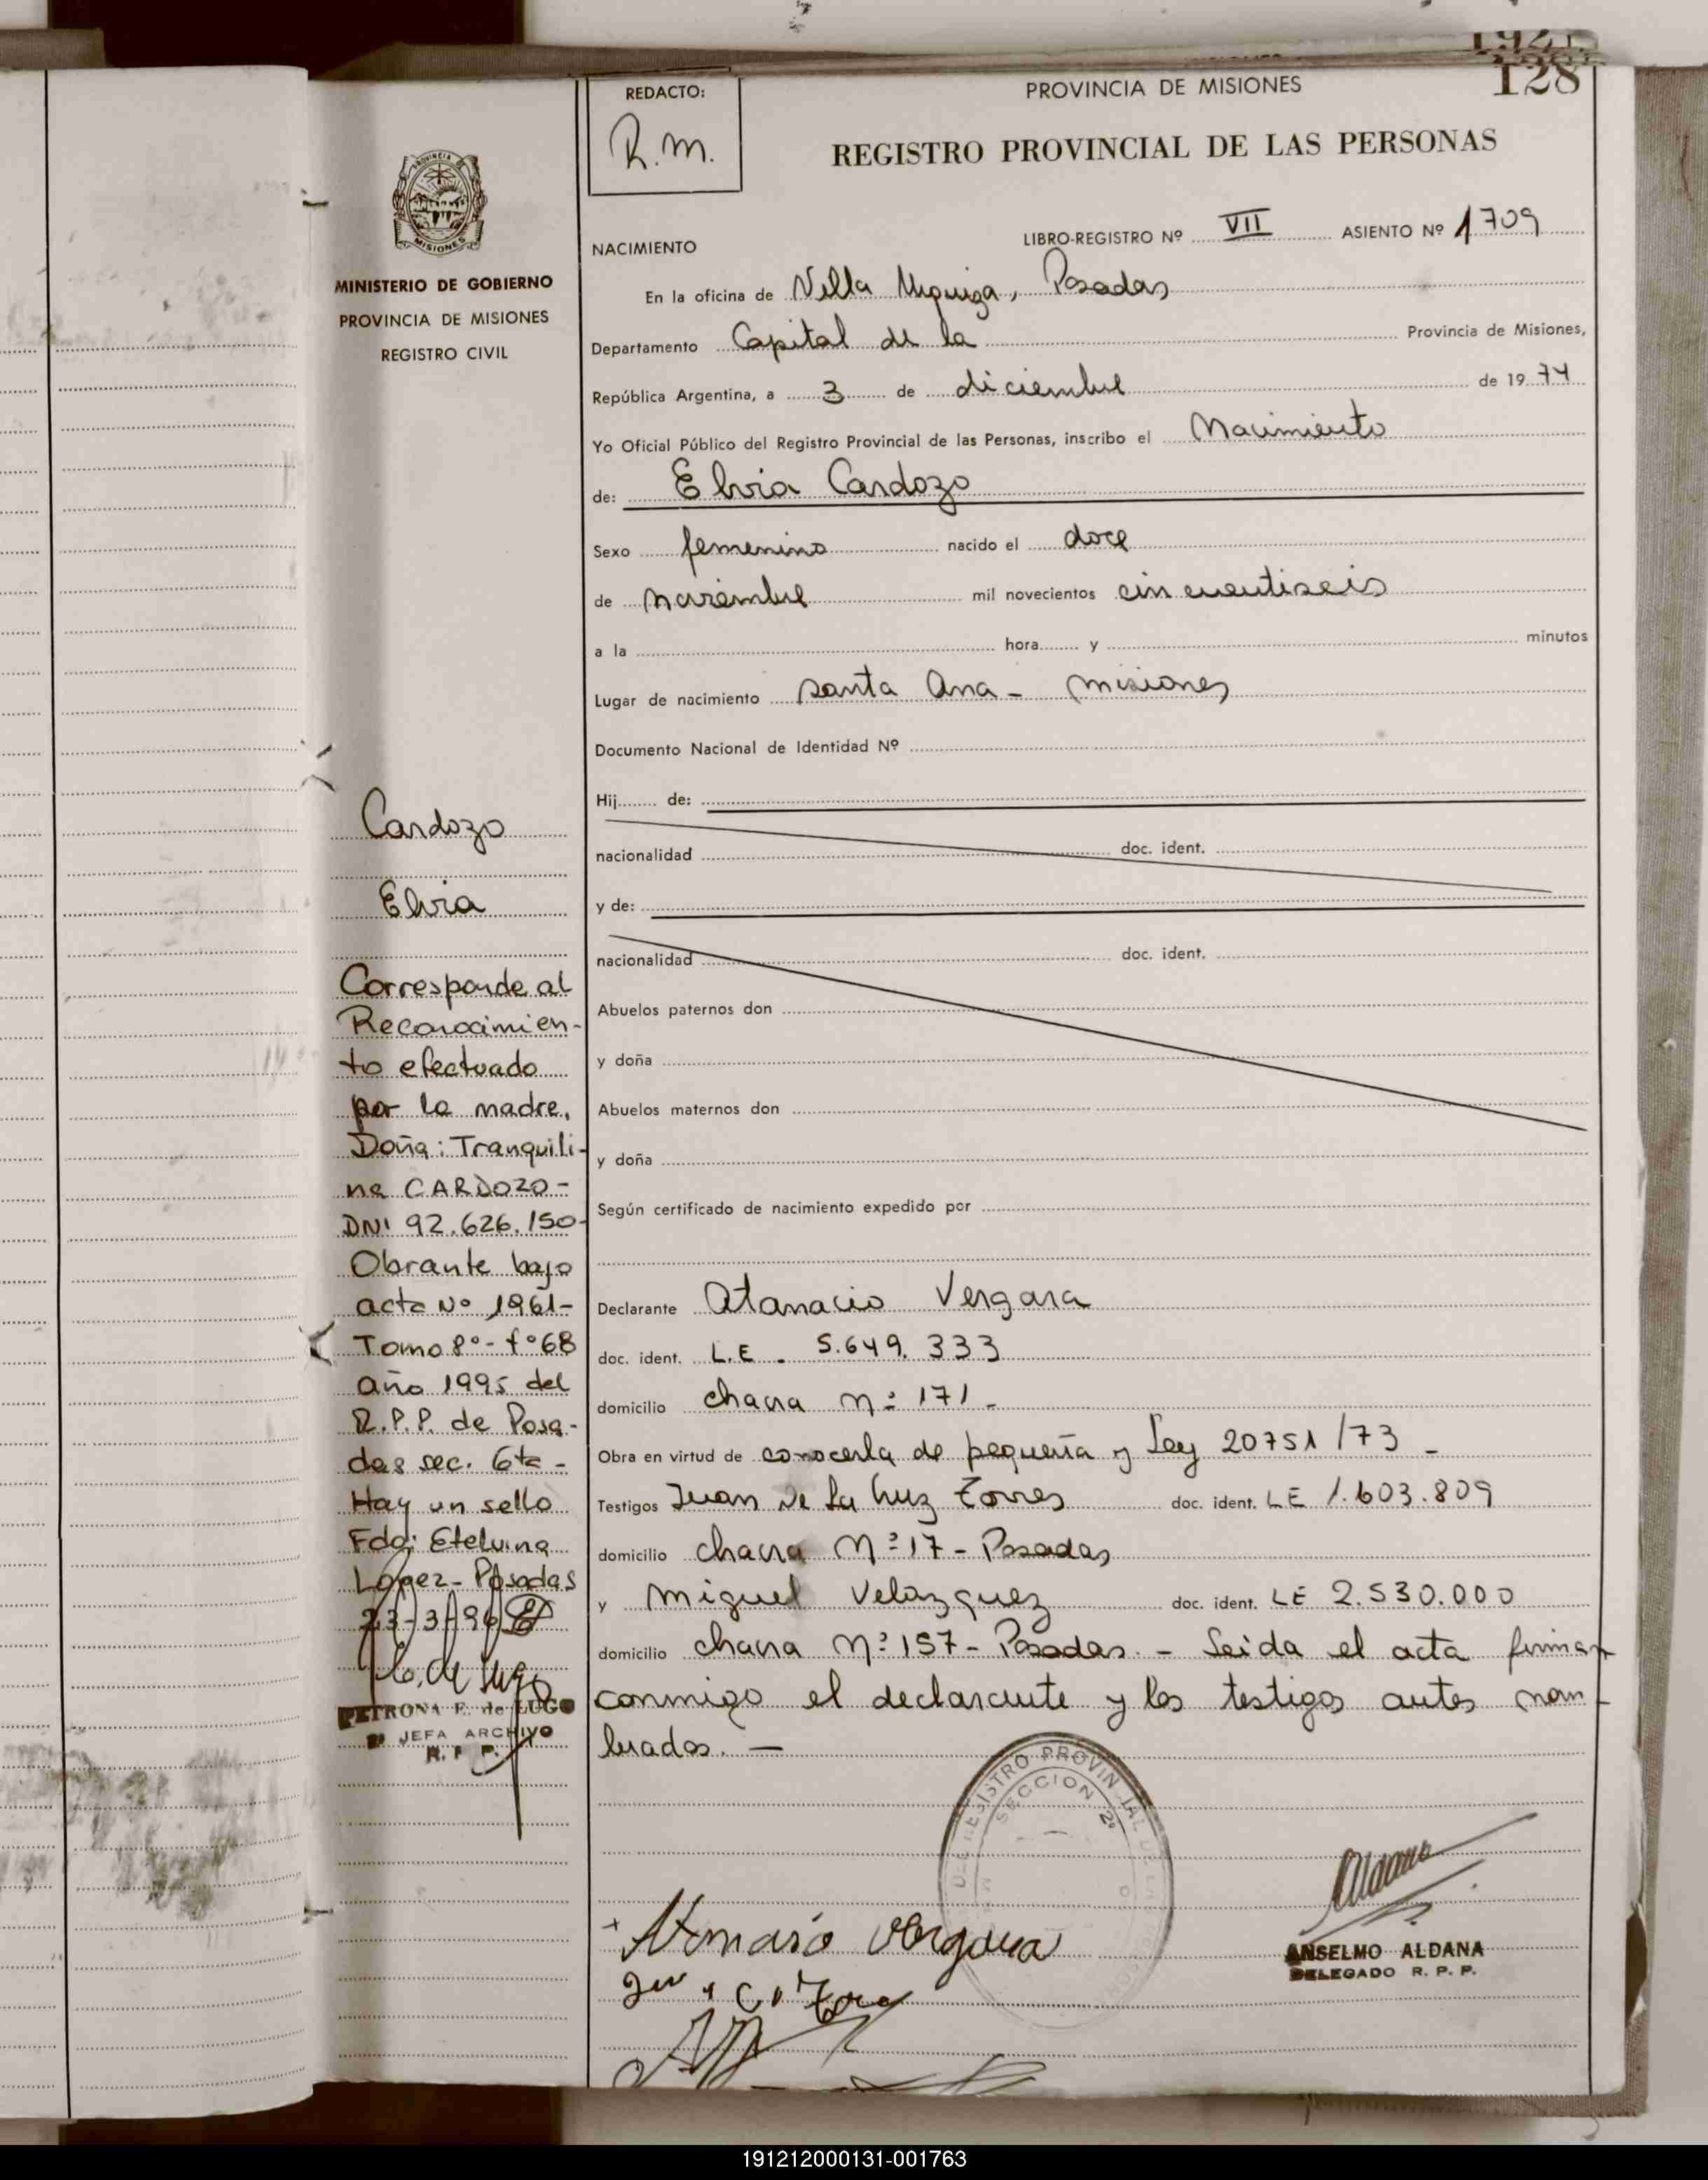 128
REDACTO:
R.M.
PROVINCIA DE MISIONES
REGISTRO PROVINCIAL DE LAS PERSONAS
LIBRO-REGISTRO Nº VII ASIENTO Nº 1709
NACIMIENTO
En la oficina de Villa Urquiza, Posadas
Departamento Capital de la Provincia de Misiones,
República Argentina, a 3 de diciembre de 1974
Yo Oficial Público del Registro Provincial de las Personas, inscribo el Nacimiento
de: Elvia Cardozo
Sexo femenino nacido el doce
de noviembre mil novecientos cincuentiseis
a la hora y minutos
Lugar de nacimiento santa Ana - misiones
Documento Nacional de Identidad Nº
Hij de:
nacionalidad doc. ident.
y de:
nacionalidad doc. ident.
Abuelos paternos don
y doña
Abuelos maternos don
y doña
Según certificado de nacimiento expedido por
Declarante Atanacio Vergara
doc. ident. L.E. 5.649.333
domicilio chacra Nº 171 -
Obra en virtud de conocerla de pequeña y Ley 20751/73 -
Testigos Juan De La Luz Torres doc. ident. LE 1.603.809
domicilio chacra Nº 17 - Posadas
y Miguel Velazquez doc. ident. LE 2.530.000
domicilio chacra Nº 157 - Posadas. - Leida el acta firman
conmigo el declarante y los testigos antes nom-
brados. —
PROVINCIA DE
MISIONES
MINISTERIO DE GOBIERNO
PROVINCIA DE MISIONES
REGISTRO CIVIL
Cardozo
Elvia
Corresponde al
Reconocimien-
to efectuado
por la madre,
Doña: Tranquili-
na CARDOZO -
DNI 92.626.150-
Obrante bajo
acta Nº 1961-
Tomo 8º - fº 68
año 1995 del
R.P.P. de Posa-
das sec. 6ta -
Hay un sello
Fdo: Etelvina
López - Posadas
23-3-96
PETRONA E. de LUGO
JEFA ARCHIVO
R. P. P.
REGISTRO PROVINCIAL DE LAS
SECCION 2º
Atanasio Vergara
Aldana
ANSELMO ALDANA
DELEGADO R. P. P.
191212000131-001763